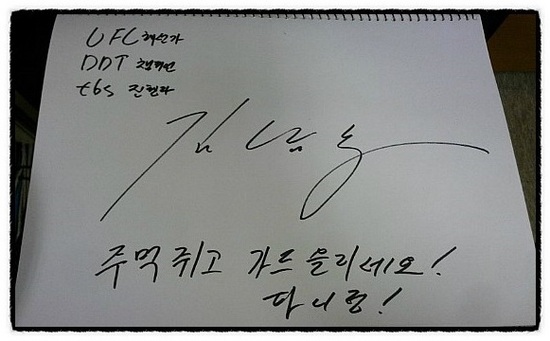 UFC 해설가
DDT 챔피언
tbs 진행자
김남훈
주먹쥐고 가드 올리세요!
다니엥!